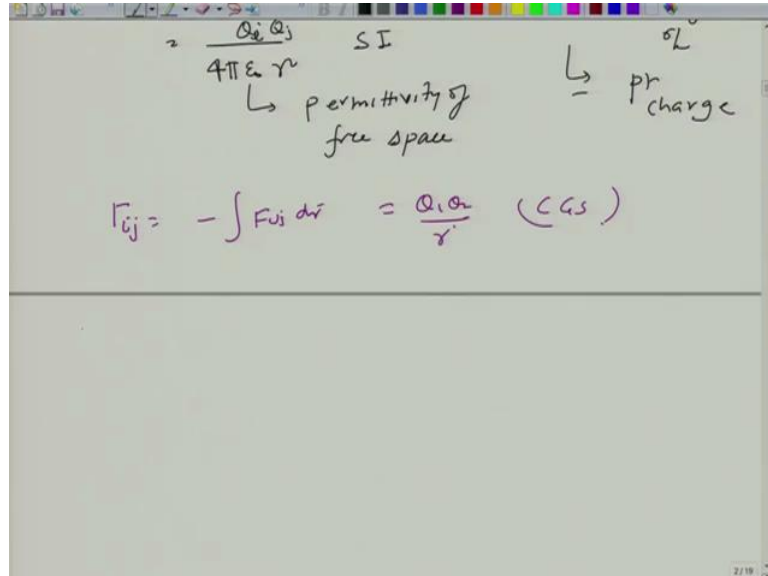 = QiQj / 4πε₀ r² SI
↳ permittivity of free space
↳ pr charge
Γij = - ∫ Fij dr = Q1Q2 / r (CGS)
2/19